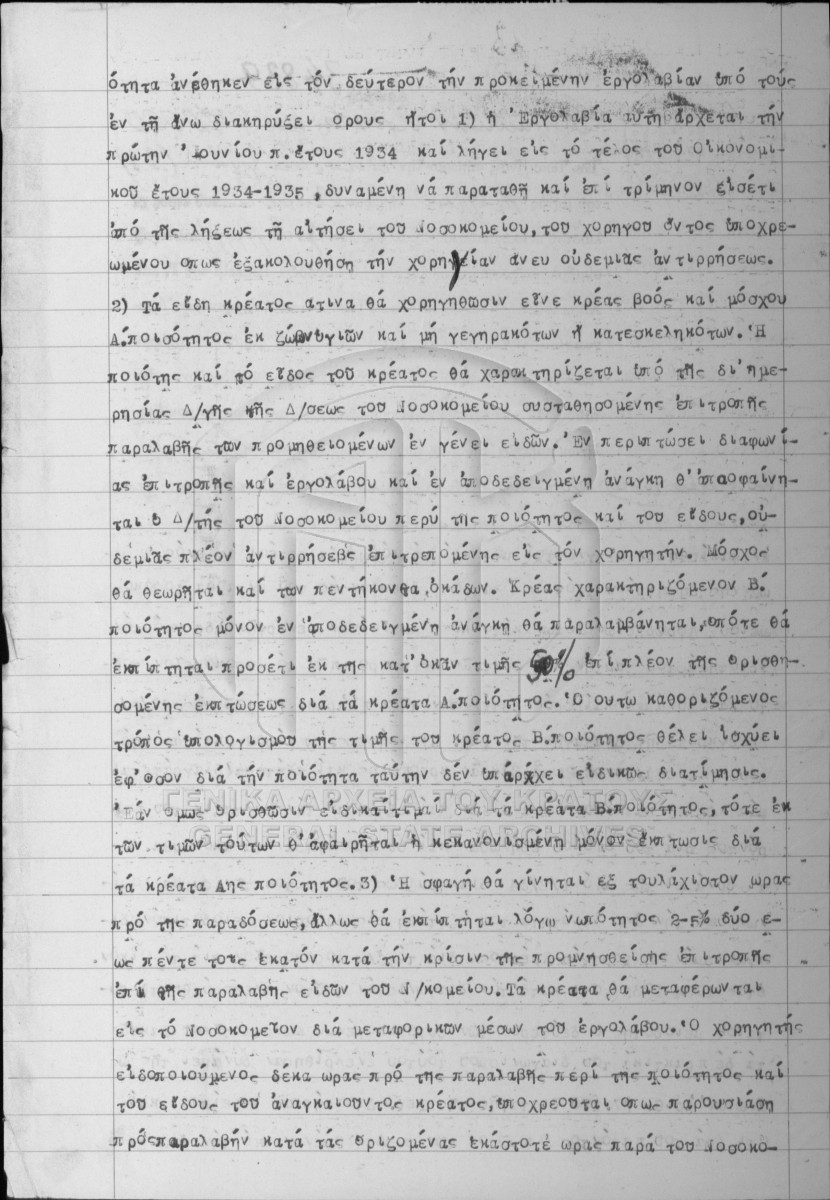 ότητα ἀνέθηκεν εἰς τόν δεύτερον τήν προκειμένην ἐργολαβίαν ὑπό τούς
ἐν τῇ ἄνω διακηρύξει ὅρους ἤτοι 1) ἡ Ἐργολαβία αὕτη ἄρχεται τήν
πρώτην Ἰουνίου π.ἔτους 1934 καί λήγει εἰς τό τέλος τοῦ Οἰκονομι-
κοῦ ἔτους 1934-1935,δυναμένη νά παραταθῇ καί ἐπί τρίμηνον εἰσέτι
ἀπό τῆς λήξεως τῇ αἰτήσει τοῦ Νοσοκομείου,τοῦ χορηγοῦ ὄντος ὑποχρε-
ωμένου ὅπως ἐξακολουθήσῃ τήν χορηγείαν ἄνευ οὐδεμιᾶς ἀντιρρήσεως.
2) Τά εἴδη κρέατος ἅτινα θά χορηγηθῶσιν εἶνε κρέας βοός καί μόσχου
Α.ποισότητος ἐκ ζώων ὑγιῶν καί μή γεγηρακότων ἤ κατεσκεληκότων.Ἡ
ποιότης καί τό εἶδος τοῦ κρέατος θά χαρακτηρίζεται ὑπό τῆς δι'ἡμε-
ρησίας Δ/γῆς τῆς Δ/σεως τοῦ Νοσοκομείου συσταθησομένης ἐπιτροπῆς
παραλαβῆς τῶν προμηθειομένων ἐν γένει εἰδῶν.Ἐν περιπτώσει διαφωνί-
ας ἐπιτροπῆς καί ἐργολάβου καί ἐν ἀποδεδειγμένῃ ἀνάγκῃ θ'ἀποφαίνη-
ται ὁ Δ/τής τοῦ Νοσοκομείου περύ τῆς ποιότητος καί τοῦ εἴδους,οὐ-
δεμιᾶς πλέον ἀντιρρήσεως ἐπιτρεπομένης εἰς τόν χορηγητήν. Μόσχος
θά θεωρῆται καί τῶν πεντήκοντα ὀκάδων. Κρέας χαρακτηριζόμενον Β.
ποιότητος μόνον ἐν ἀποδεδειγμένῃ ἀνάγκῃ θά παραλαμβάνηται,ὁπότε θά
ἐκπίπτηται προσέτι ἐκ τῆς κατ'ὀκᾶν τιμῆς 50% ἐπί πλέον τῆς ὁρισθη-
σομένης ἐκπτώσεως διά τά κρέατα Α.ποιότητος.Ὁ οὕτω καθοριζόμενος
τρόπος ὑπολογισμοῦ τῆς τιμῆς τοῦ κρέατος Β.ποιότητος θέλει ἰσχύει
ἐφ'ὅσον διά τήν ποιότητα ταύτην δέν ὑπάρχει εἰδικῶς διατίμησις.
Ἐάν ὅμως ὁρισθῶσιν εἰδικαί τιμαί διά τά κρέατα Β.ποιότητος,τότε ἐκ
τῶν τιμῶν τούτων θ'ἀφαιρῆται ἡ κεκανονισμένη μόνον ἔκπτωσις διά
τά κρέατα Αης ποιότητος.3) Ἡ σφαγή θά γίνηται ἕξ τοὐλάχιστον ὥρας
πρό τῆς παραδόσεως,ἄλλως θά ἐκπίπτηται λόγῳ νωπότητος 2-5% δύο ἕ-
ως πέντε τοῖς ἑκατόν κατά τήν κρίσιν τῆς προμνησθείσης ἐπιτροπῆς
ἐπί τῆς παραλαβῆς εἰδῶν τοῦ Ν/κομείου.Τά κρέατα θά μεταφέρωνται
εἰς τό Νοσοκομεῖον διά μεταφορικῶν μέσων τοῦ ἐργολάβου.Ὁ χορηγητής
εἰδοποιούμενος δέκα ὥρας πρό τῆς παραλαβῆς περί τῆς ποιότητος καί
τοῦ εἴδους τοῦ ἀναγκαιοῦντος κρέατος,ὑποχρεοῦται ὅπως παρουσιάσῃ
πρός παραλαβήν κατά τάς ὁριζομένας ἑκάστοτε ὥρας παρά τοῦ Νοσοκο-
ΓΕΝΙΚΑ ΑΡΧΕΙΑ ΤΟΥ ΚΡΑΤΟΥΣ
GENERAL STATE ARCHIVES